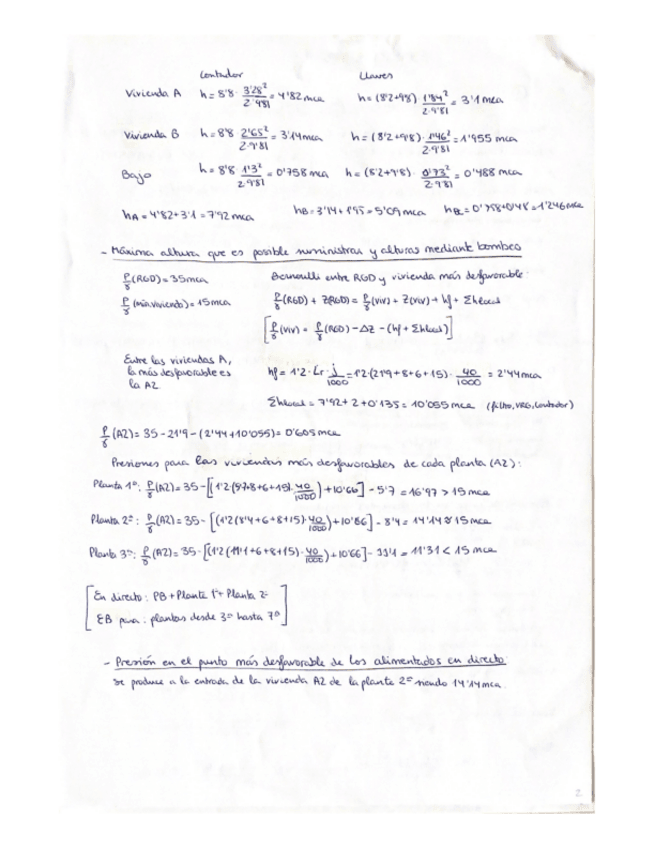 Contador Llaves
Vivienda A h = 8'8 · 3'28²/2·9'81 = 4'82 mca h = (8'2+9'8) 1'84²/2·9'81 = 3'1 mca
Vivienda B h = 8'8 2'65²/2·9'81 = 3'14 mca h = (8'2+9'8) · 1'46²/2·9'81 = 1'955 mca
Bajo h = 8'8 1'3²/2·9'81 = 0'758 mca h = (8'2+9'8) · 0'73²/2·9'81 = 0'488 mca
hA = 4'82+3'1 = 7'92 mca hB = 3'14+1'95 = 5'09 mca hBC = 0'758+0'48 = 1'246 mca
- Máxima altura que es posible suministrar y alturas mediante bombeo
P/γ (RGD) = 35 mca Bernoulli entre RGD y vivienda más desfavorable:
P/γ (min vivienda) = 15 mca P/γ (RGD) + ZRGD = P/γ (viv) + Z(viv) + hf + Σhlocal
[P/γ (viv) = P/γ (RGD) - ΔZ - (hf + Σhlocal)]
Entre las viviendas A,
la más desfavorable es
la A2
hf = 1'2 · Lr · j/1000 = 1'2 (21'9+8+6+15) · 40/1000 = 2'44 mca
Σhlocal = 7'92+2+0'135 = 10'055 mca (filtro, VRG, Contador)
P/γ (A2) = 35 - 21'9 - (2'44+10'055) = 0'605 mca
Presiones para las viviendas más desfavorables de cada planta (A2):
Planta 1ª: P/γ (A2) = 35 - [(1'2 (5'7+8+6+15) · 40/1000) + 10'66] - 5'7 = 16'97 > 15 mca
Planta 2ª: P/γ (A2) = 35 - [(1'2 (8'4+6+8+15) · 40/1000) + 10'66] - 8'4 = 14'14 ≈ 15 mca
Planta 3ª: P/γ (A2) = 35 - [(1'2 (11'1+6+8+15) · 40/1000) + 10'66] - 11'1 = 11'31 < 15 mca
[En directo: PB + Planta 1ª + Planta 2ª
EB para: plantas desde 3ª hasta 7ª]
- Presión en el punto más desfavorable de los alimentados en directo
se produce a la entrada de la vivienda A2 de la planta 2ª siendo 14'14 mca.
2